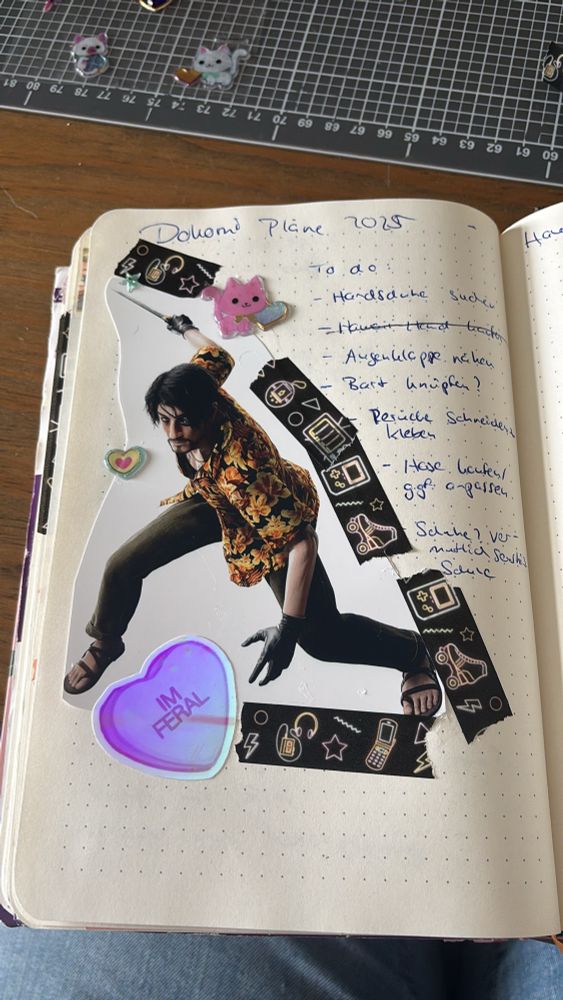 81 80 79 78 77 76 75 74 73 72 71 70 69 68 67 66 65 64 63 62 61 60
Dokomi Pläne 2025 -
Hau
To do:
- Handschuhe suchen
- Hawaii Hemd kaufen
- Augenklappe nähen
- Bart knüpfen?
- Perücke schneiden &
kleben
- Hose kaufen/
ggf. anpassen
Schuhe? Ver-
mutlich
Schuhe
IM
FERAL